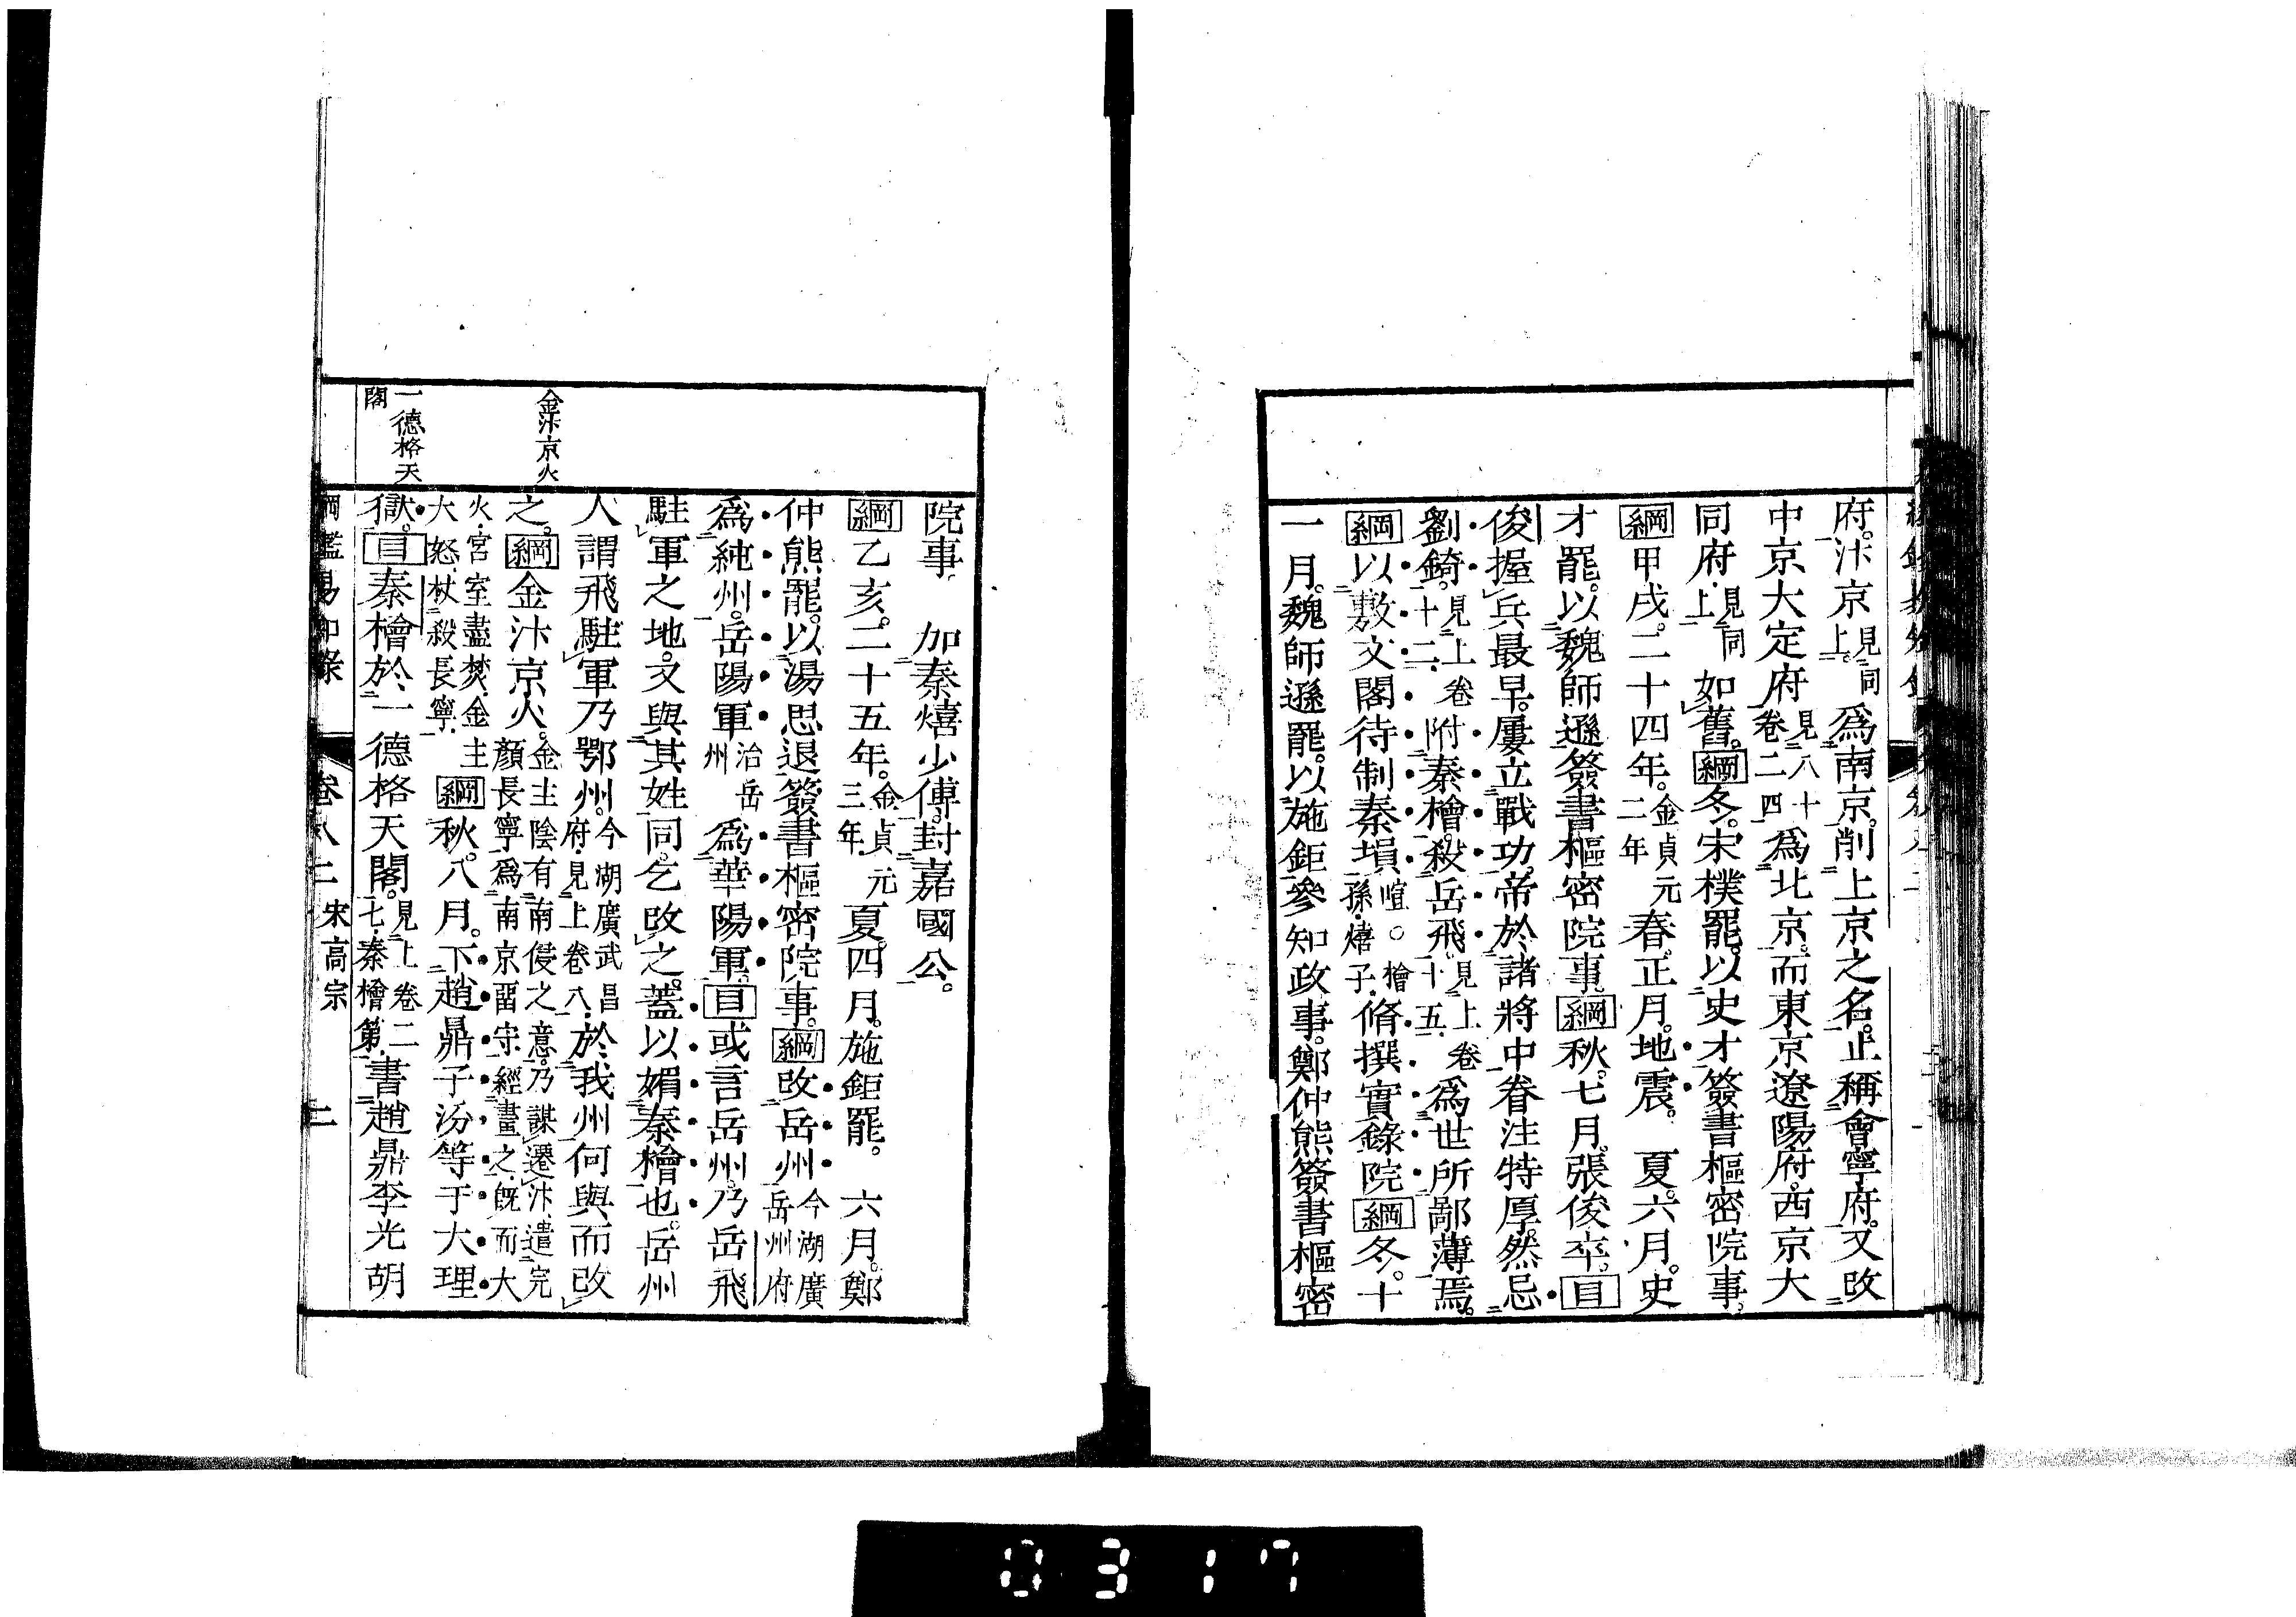 府。汴京見同上。爲南京。削上京之名。止稱會寧府。又改
中京大定府見八十卷二四爲北京。而東京遼陽府。西京大
同府見同上如舊。綱冬。宋樸罷。以史才簽書樞密院事。
綱甲戌。二十四年。金貞元二年春。正月。地震。夏。六月。史
才罷。以魏師遜簽書樞密院事。綱秋。七月。張俊卒。目
俊握兵最早。屢立戰功。帝於諸將中眷注特厚。然忌
劉錡。見上卷十二附秦檜。殺岳飛。見上卷十五爲世所鄙薄焉。
綱以敷文閣待制秦塤喧。檜孫。熺子脩撰實錄院。綱冬。十
一月。魏師遜罷。以施鉅參知政事。鄭仲熊簽書樞密
院事 加秦熺少傅。封嘉國公。
綱乙亥。二十五年。金貞元三年夏。四月。施鉅罷。 六月。鄭
仲熊罷。以湯思退簽書樞密院事。綱改岳州今湖廣岳州府
爲純州。岳陽軍治岳州爲華陽軍。目或言岳州。乃岳飛
駐軍之地。又與其姓同。乞改之。蓋以媚秦檜也。岳州
人謂飛駐軍乃鄂州。今湖廣武昌府。見上卷八。於我州何與而改
之。綱金汴京火。金主陰有南侵之意。乃謀遷汴。遣完顏長寧爲南京畱守。經畫之。旣而大
火。宮室盡焚。金主大怒。杖殺長寧。綱秋。八月。下趙鼎子汾等于大理
獄。目秦檜於一德格天閣。見上卷二七。秦檜第。書趙鼎李光胡
金汴京火
一德格天
閣
綱鑑易知錄 卷八二 宋高宗 二